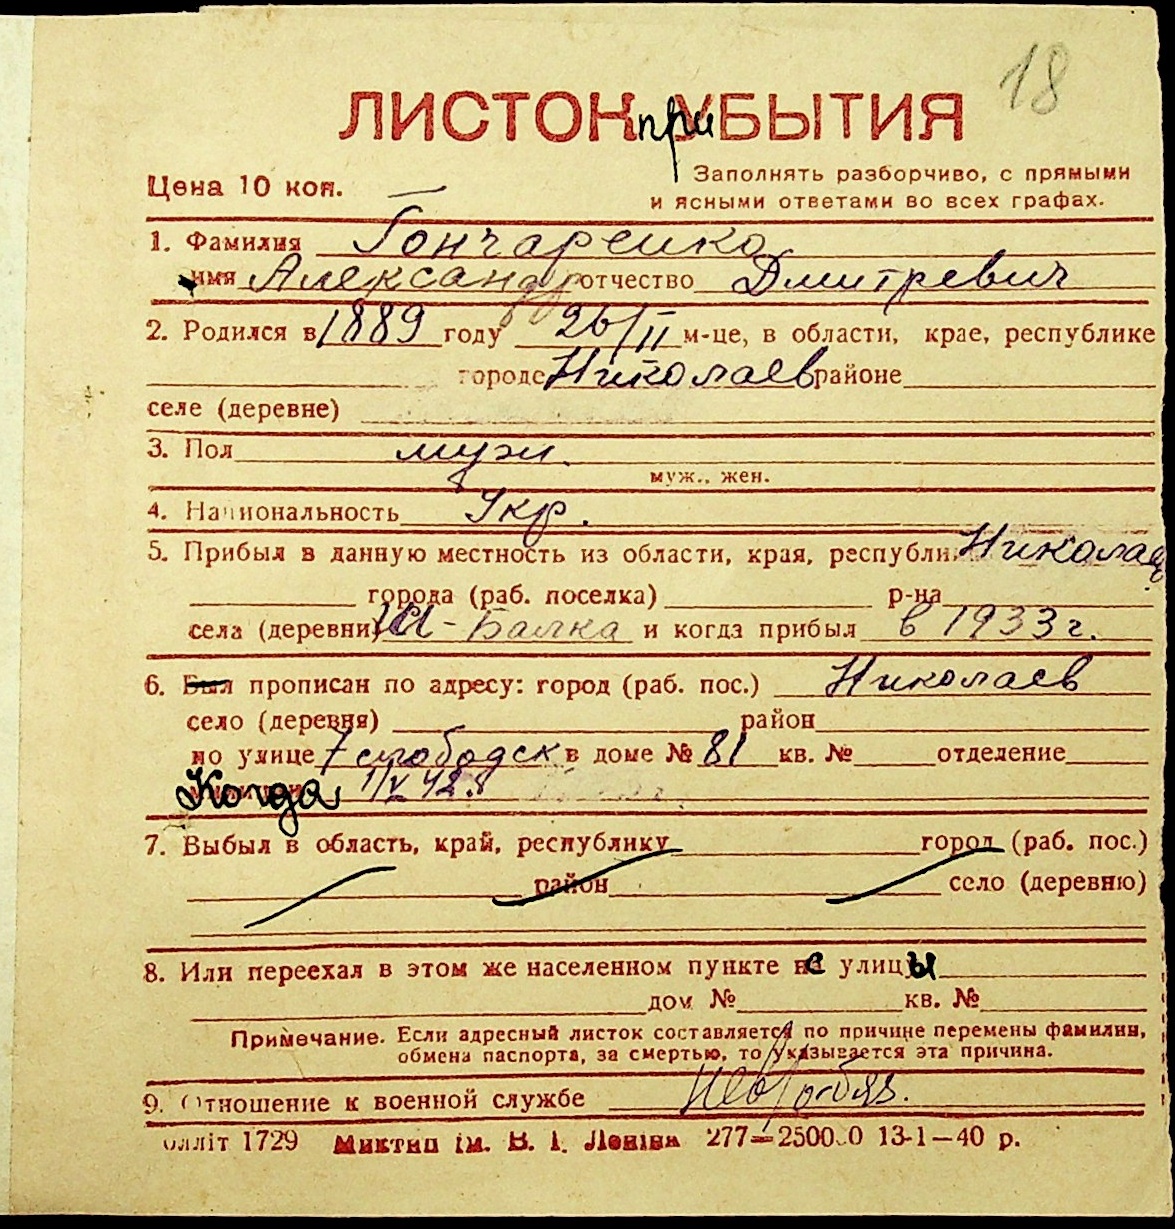 18
ЛИСТОК при УБЫТИЯ
Цена 10 коп.
Заполнять разборчиво, с прямыми
и ясными ответами во всех графах.
1. Фамилия Гончаренко
имя Александр отчество Дмитревич
2. Родился в 1889 году 26/II м-це, в области, крае, республике
городе Николаев районе
селе (деревне)
3. Пол муж.
муж., жен.
4. Национальность Укр.
5. Прибыл в данную местность из области, края, республи Николаев
города (раб. поселка) р-на
села (деревни) - Балка и когда прибыл в 1933 г.
6. Был прописан по адресу: город (раб. пос.) Николаев
село (деревня) район
по улице 7 слободск в доме № 81 кв. № отделение
Когда 1/V 42 г
7. Выбыл в область, край, республику город (раб. пос.)
район село (деревню)
8. Или переехал в этом же населенном пункте с улицы
дом № кв. №
Примечание. Если адресный листок составляется по причине перемены фамилии,
обмена паспорта, за смертью, то указывается эта причина.
9. Отношение к военной службе нев/обяз.
олліт 1729 Миктип ім. В. І. Леніна 277—250000 13-1—40 р.